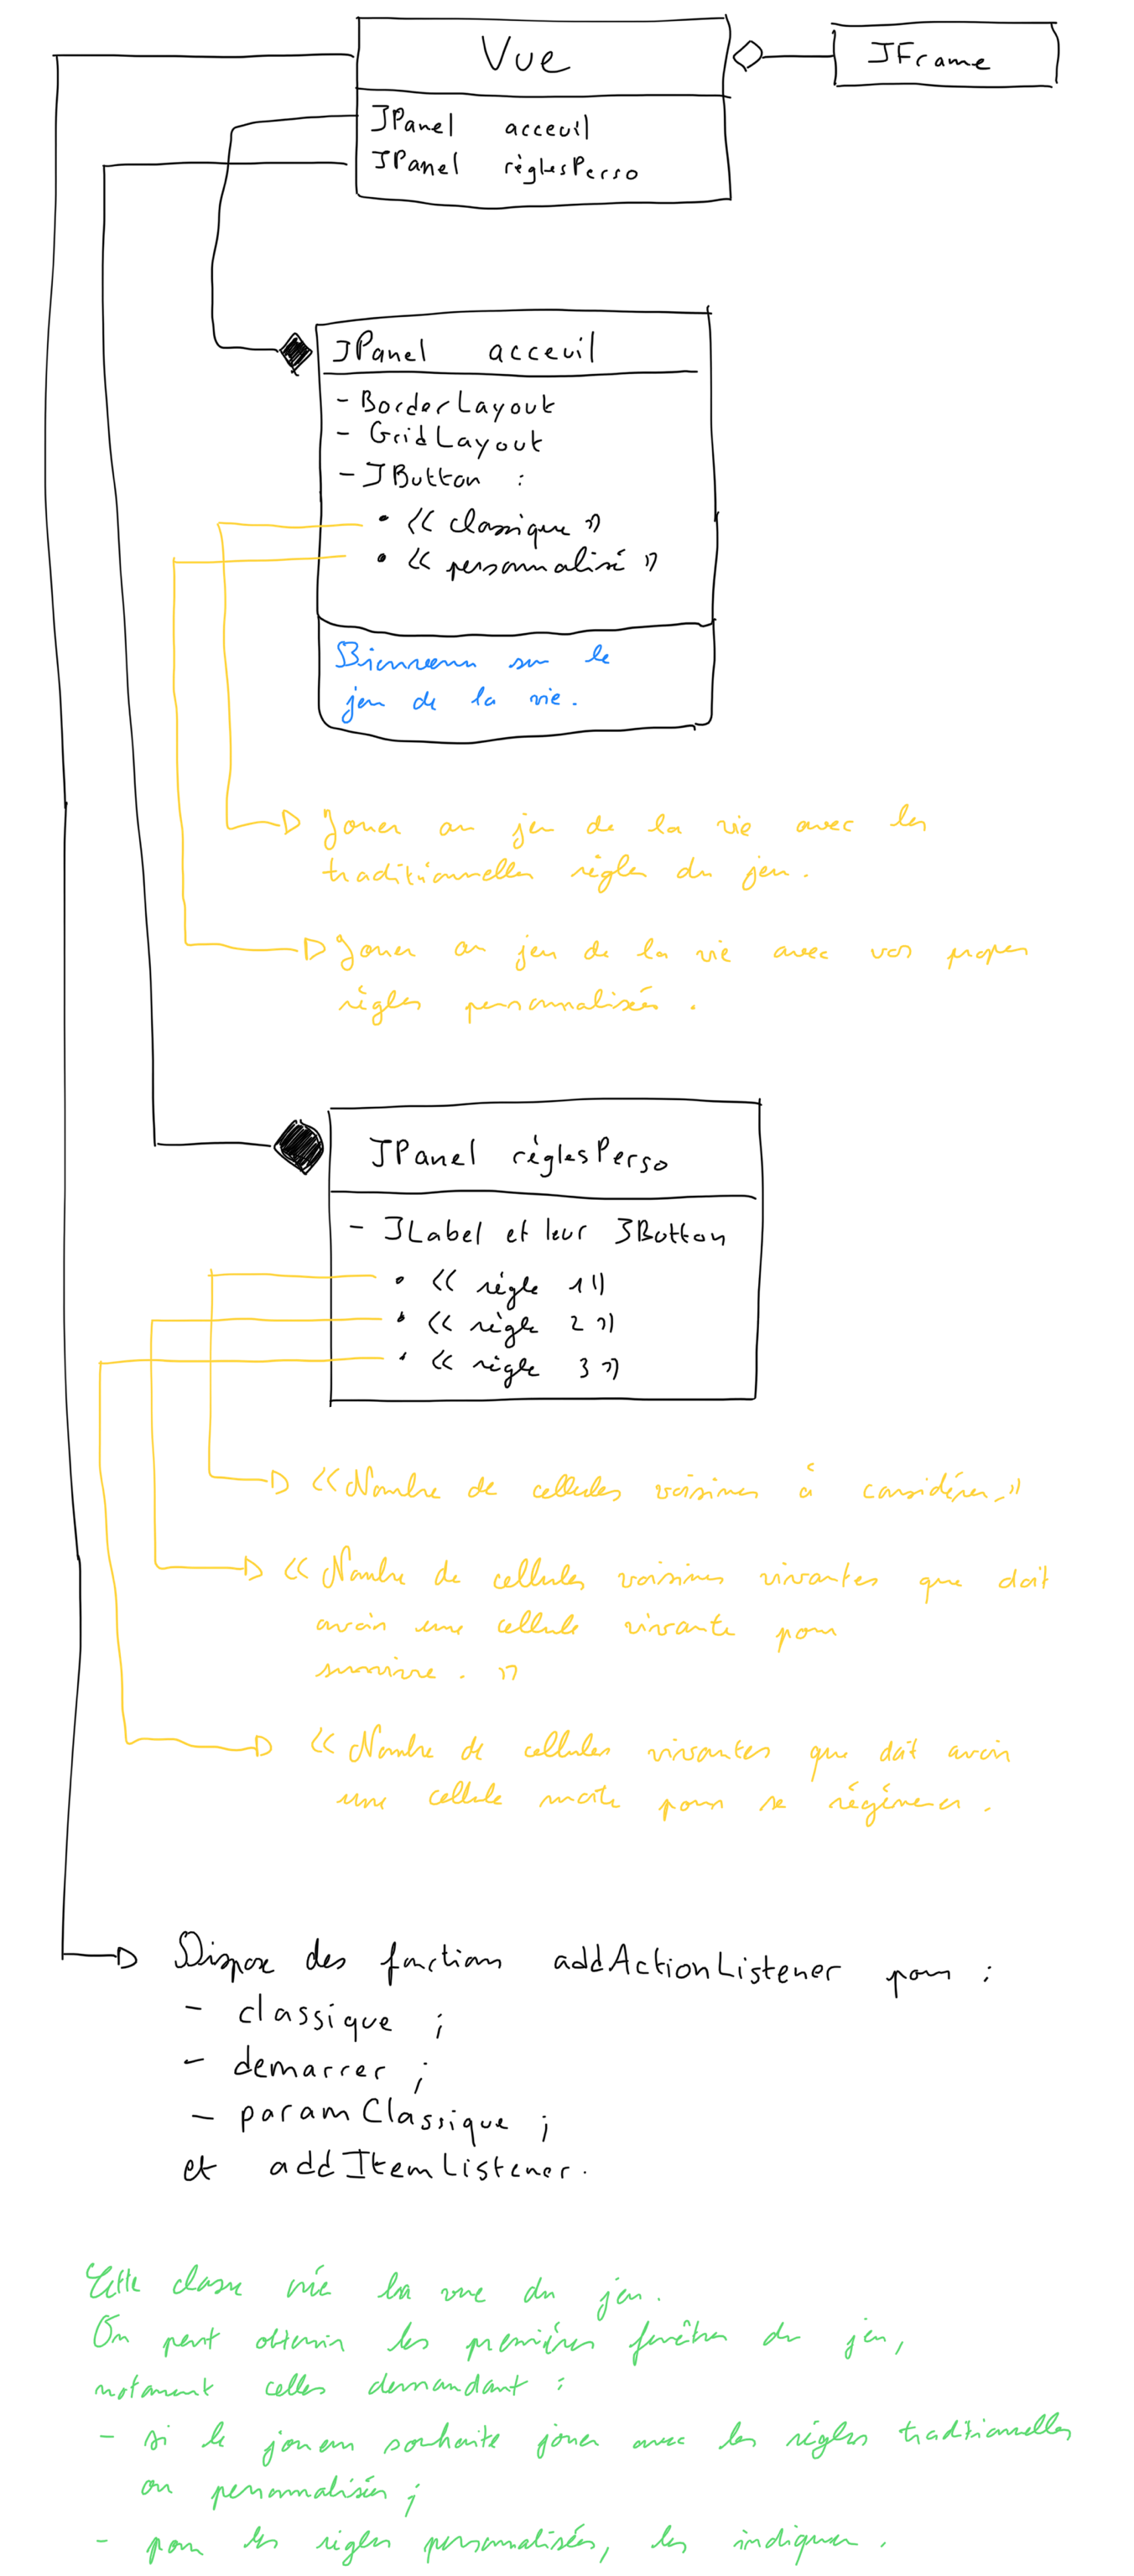 Vue
JFrame
JPanel acceuil
JPanel règlesPerso
JPanel acceuil
- BorderLayout
- GridLayout
- JButton :
• « classique »
• « personnalisé »
Bienvenu sur le
jeu de la vie.
Jouer au jeu de la vie avec les
traditionnelles règles du jeu.
Jouer au jeu de la vie avec vos propres
règles personnalisées.
JPanel règlesPerso
- JLabel et leur JButton
• « règle 1 »
• « règle 2 »
• « règle 3 »
« Nombre de cellules voisines à considérer. »
« Nombre de cellules voisines vivantes que doit
avoir une cellule vivante pour
survivre. »
« Nombre de cellules vivantes que doit avoir
une cellule morte pour se régénérer.
Dispose des fonctions addActionListener pour :
- classique ;
- demarrer ;
- paramClassique ;
et addItemListener.
Cette classe crée la vue du jeu.
On peut obtenir les premières fenêtres du jeu,
notament celles demandant :
- si le joueur souhaite jouer avec les règles traditionnelles
ou personnalisées ;
- pour les règles personnalisées, les indiquer.